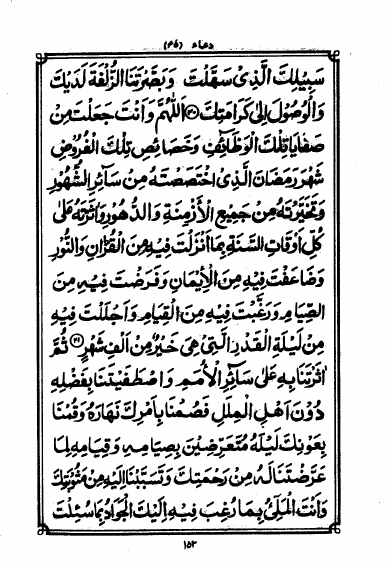 دعاء (۴۵)
سَبِيلِكَ الَّذِىْ سَهَّلْتَ وَبَصَّرْتَنَا الزُّلْفَةَ لَدَيْكَ
وَالْوُصُوْلَ اِلٰى كَرَامَتِكَ ﴿۲۰﴾ اَللّٰهُمَّ وَاَنْتَ جَعَلْتَ مِنْ
صَفَايَا تِلْكَ الْوَظَائِفِ وَخَصَائِصِ تِلْكَ الْفُرُوْضِ
شَهْرَ رَمَضَانَ الَّذِىْ اخْتَصَصْتَهٗ مِنْ سَائِرِ الشُّهُوْرِ
وَتَخَيَّرْتَهٗ مِنْ جَمِيْعِ الْاَزْمِنَةِ وَالدُّهُوْرِ وَاٰثَرْتَهٗ عَلٰى
كُلِّ اَوْقَاتِ السَّنَةِ بِمَا اَنْزَلْتَ فِيْهِ مِنَ الْقُرْاٰنِ وَالنُّوْرِ
وَضَاعَفْتَ فِيْهِ مِنَ الْاِيْمَانِ وَفَرَضْتَ فِيْهِ مِنَ
الصِّيَامِ وَرَغَّبْتَ فِيْهِ مِنَ الْقِيَامِ وَاَجْلَلْتَ فِيْهِ
مِنْ لَيْلَةِ الْقَدْرِ الَّتِىْ هِىَ خَيْرٌ مِنْ اَلْفِ شَهْرٍ ﴿۲۱﴾ ثُمَّ
اٰثَرْتَنَا بِهٖ عَلٰى سَائِرِ الْاُمَمِ وَاصْطَفَيْتَنَا بِفَضْلِهٖ
دُوْنَ اَهْلِ الْمِلَلِ فَصُمْنَا بِاَمْرِكَ نَهَارَهٗ وَقُمْنَا
بِعَوْنِكَ لَيْلَهٗ مُتَعَرِّضِيْنَ بِصِيَامِهٖ وَقِيَامِهٖ لِمَا
عَرَّضْتَنَا لَهٗ مِنْ رَحْمَتِكَ وَتَسَبَّبْنَا اِلَيْهِ مِنْ مَثُوْبَتِكَ
وَاَنْتَ الْمَلِىُّ بِمَا رُغِبَ فِيْهِ اِلَيْكَ الْجَوَادُ بِمَا سُئِلْتَ
۱۵۳